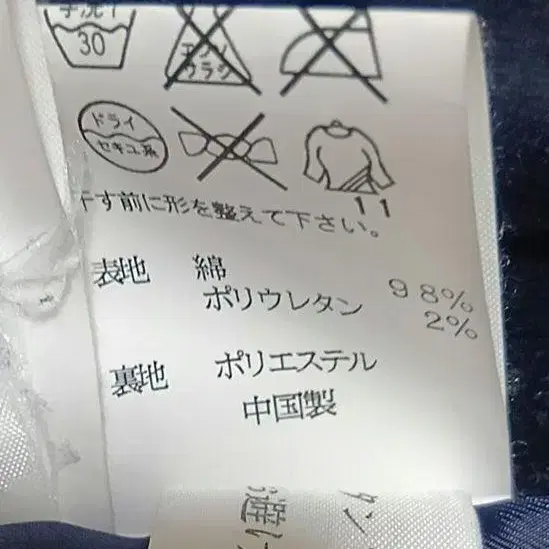 手洗イ
30
エンソ
サラシ
ドライ
セキユ系
11
干す前に形を整えて下さい。
表地 綿 98%
ポリウレタン 2%
裏地 ポリエステル
中国製
タン